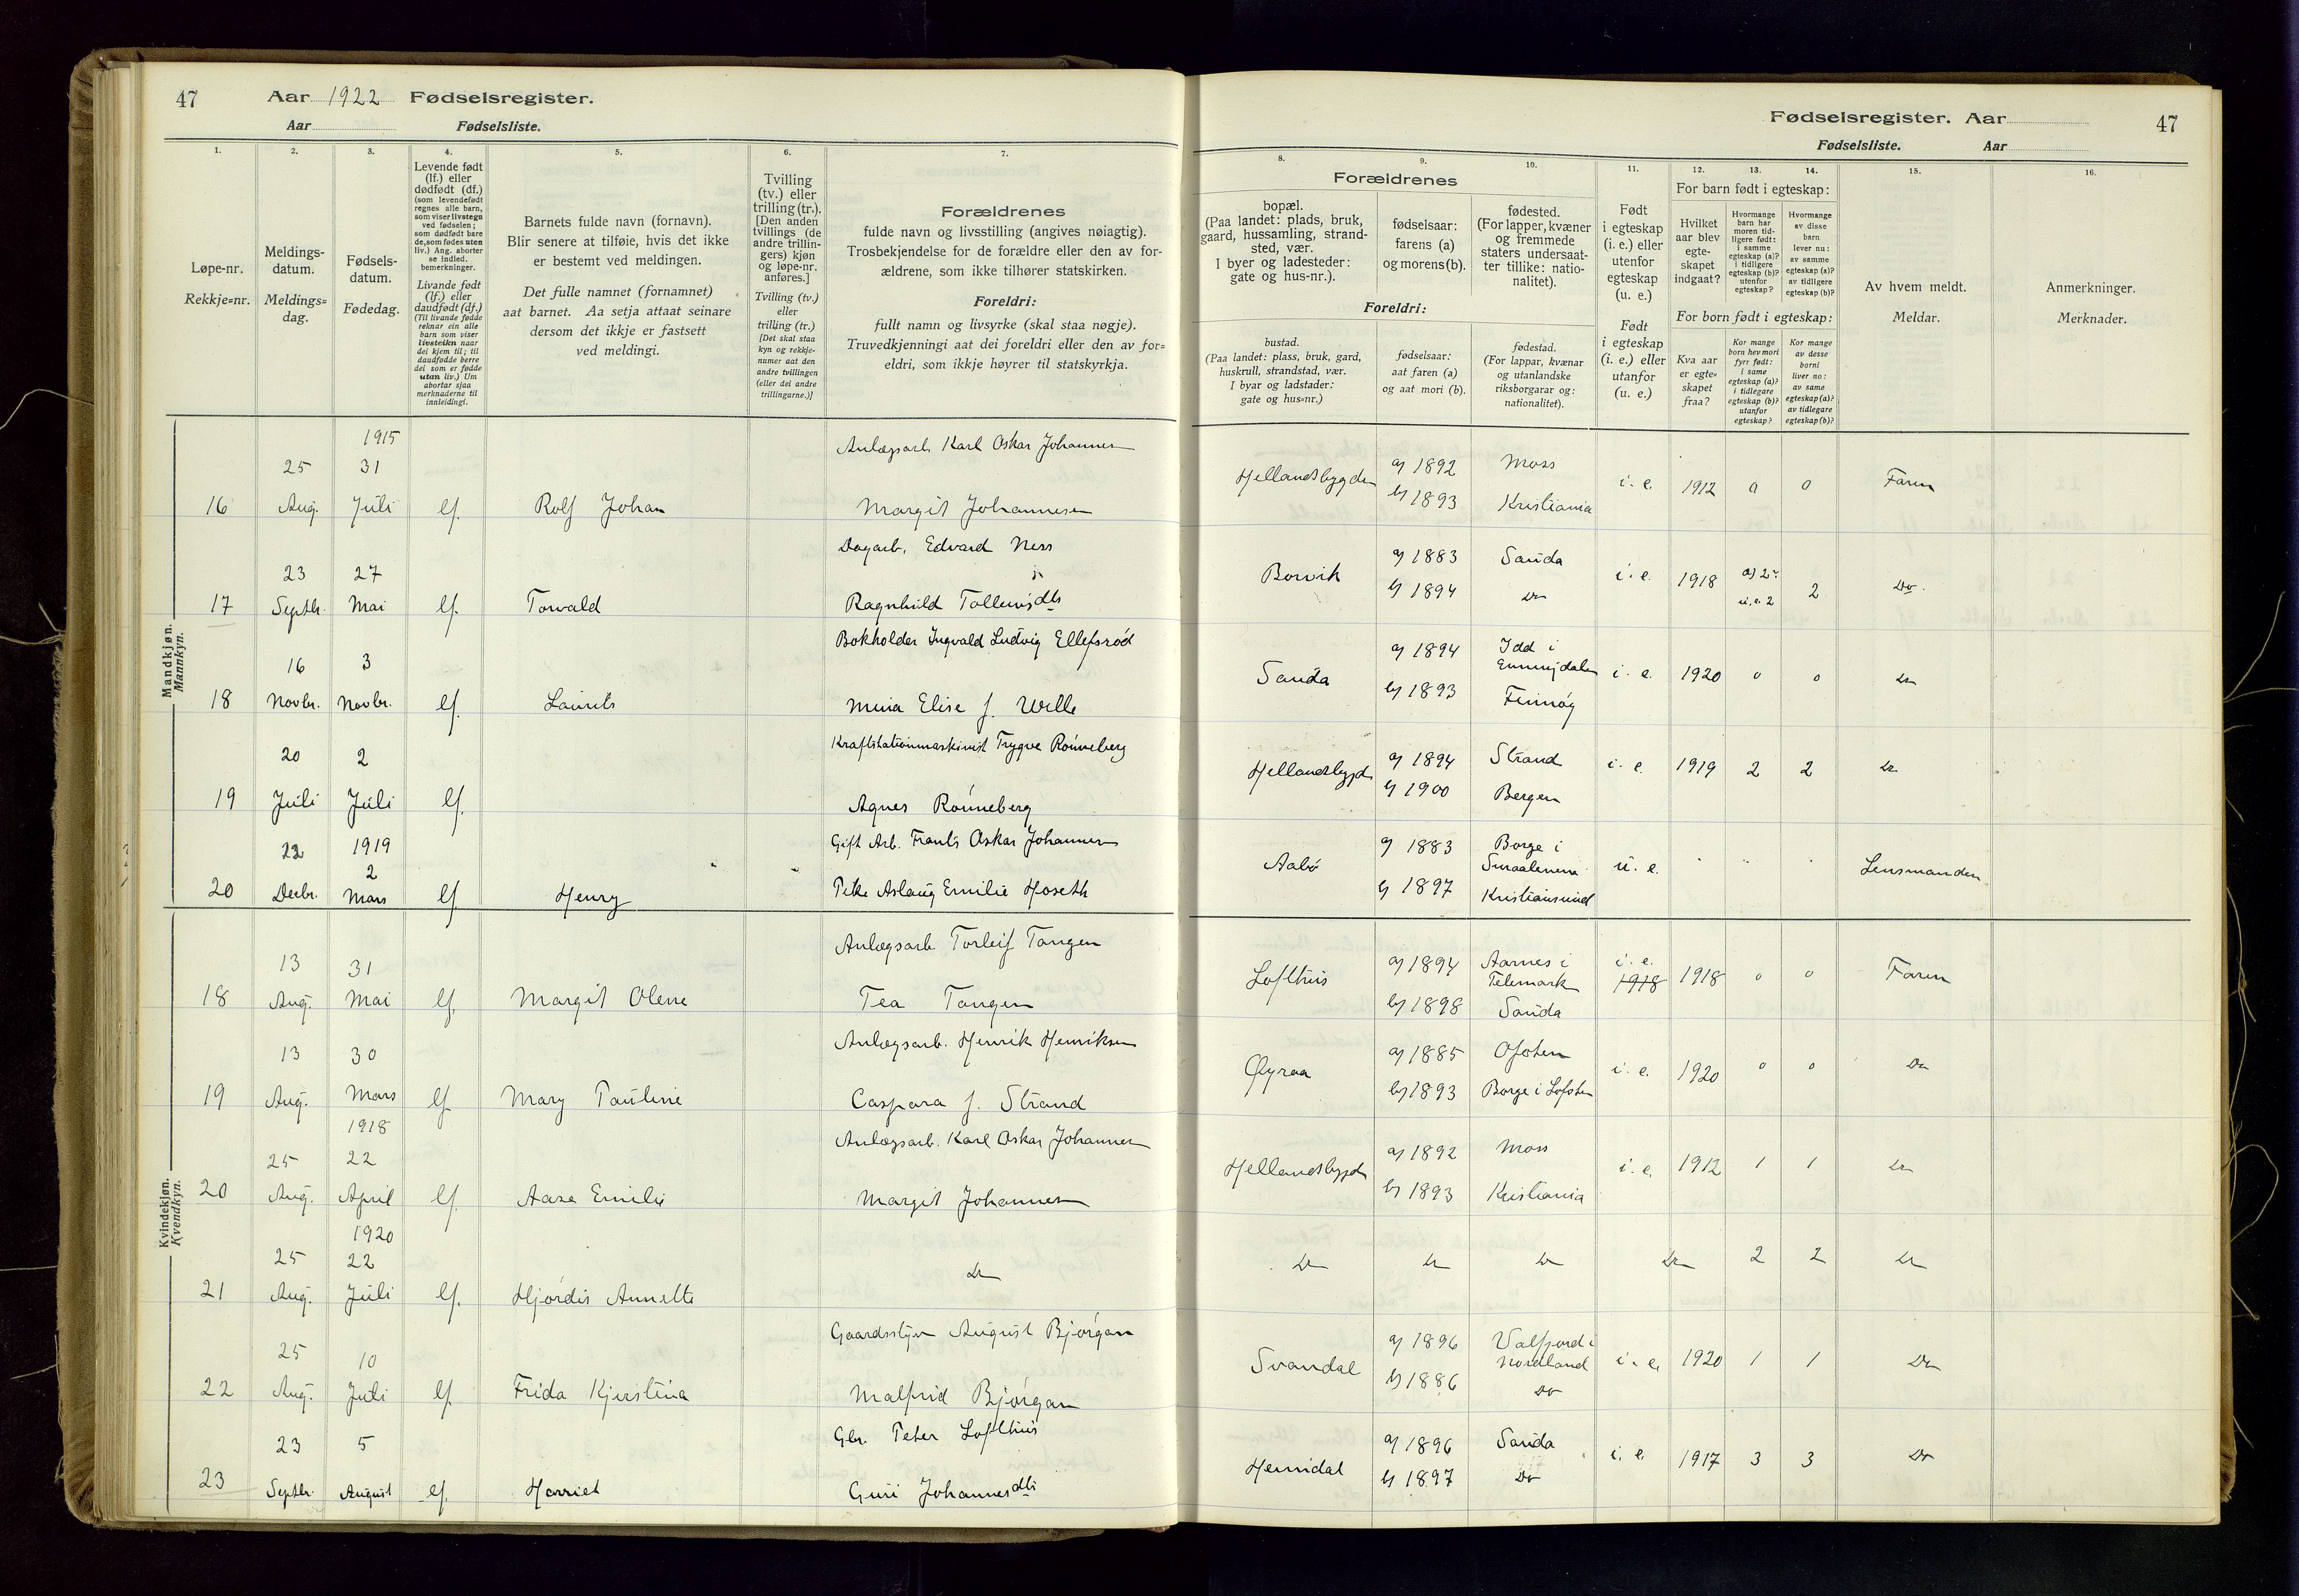 47 Aar 1922 Fødselsregister.
Aar Fødselsliste.
1. 2. 3. 4. 5. 6. 7.
Løpe-nr.
Rekkje=nr.
Meldings-
datum.
Meldings=
dag.
Fødsels-
datum.
Fødedag.
Levende født
(lf.) eller
dødfødt (df.)
(som levendefødt
regnes alle barn,
som viser livstegn
ved fødselen;
som dødfødt bare
de, som fødes uten
liv.) Ang. aborter
se indled.
bemerkninger.
Livande født
(lf.) eller
daudfødt (df.)
(Til livande fødde
reknar ein alle
barn som viser
livsteikn naar
dei kjem til; til
daudfødde berre
dei som er fødde
utan liv.) Um
abortar sjaa
merknaderne til
innleidingi.
Barnets fulde navn (fornavn).
Blir senere at tilføie, hvis det ikke
er bestemt ved meldingen.
Det fulle namnet (fornamnet)
aat barnet. Aa setja attaat seinare
dersom det ikkje er fastsett
ved meldingi.
Tvilling
(tv.) eller
trilling (tr.).
[Den anden
tvillings (de
andre trillin-
gers) kjøn
og løpe-nr.
anføres.]
Tvilling (tv.)
eller
trilling (tr.)
[Det skal staa
kyn og rekkje-
numer aat den
andre tvillingen
(eller dei andre
trillingarne.)]
Forældrenes
fulde navn og livsstilling (angives nøiagtig).
Trosbekjendelse for de forældre eller den av for-
ældrene, som ikke tilhører statskirken.
Foreldri:
fullt namn og livsyrke (skal staa nøgje).
Truvedkjenningi aat dei foreldri eller den av for=
eldri, som ikkje høyrer til statskyrkja.
Mandkjøn.
Mannkyn.
1915 Anlægsarb. Karl Oskar Johannesen
25 31
16 Aug. Juli lf. Rolf Johan Margit Johannesen
Dagarb. Edvard Ness
23 27
17 Septbr. Mai lf. Torvald Ragnhild Tollevsdtr
Bokholder Ingvald Ludvig Ellefsrød
16 3
18 Novbr. Novbr. lf. Laurits Mina Elise f. Wille
Kraftstationmaskinist Trygve Rønneberg
20 2
19 Juli Juli lf. Agnes Rønneberg
22 1919 Gift Arb. Frants Oskar Johannesen
2
20 Decbr. Mars lf. Henry Pike Aslaug Emilie Hoseth
Kvindekjøn.
Kvendkyn.
Anlægsarb. Torleif Tangen
13 31
18 Aug. Mai lf. Margit Olene Tea Tangen
Anlægsarb. Henrik Henriksen
13 30
19 Aug. Mars lf. Mary Pauline Caspara f. Strand
1918 Anlægsarb. Karl Oskar Johannesen
25 22
20 Aug. April lf. Aase Emilie Margit Johannesen
1920
25 22 Do
21 Aug. Juli lf. Hjørdis Annette
Gaardsstyr August Bjørgan
25 10
22 Aug. Juli lf. Frida Kjerstina Malfrid Bjørgan
Gbr. Peter Lofthus
23 5
23 Septbr. August lf. Harriet Guri Johannesdtr
Fødselsregister. Aar 47
Fødselsliste. Aar
8. 9. 10. 11. 12. 13. 14. 15. 16.
Forældrenes
bopæl.
(Paa landet: plads, bruk,
gaard, hussamling, strand-
sted, vær.
I byer og ladesteder:
gate og hus-nr.).
fødselsaar:
farens (a)
og morens (b).
fødested.
(For lapper, kvæner
og fremmede
staters undersaat-
ter tillike: natio-
nalitet).
Foreldri:
bustad.
(Paa landet: plass, bruk, gard,
huskrull, strandstad, vær.
I byar og ladstader:
gate og hus=nr.)
fødselsaar:
aat faren (a)
og aat mori (b).
fødestad.
(For lappar, kvænar
og utanlandske
riksborgarar og:
nationalitet).
Født
i egteskap
(i. e.) eller
utenfor
egteskap
(u. e.)
Født
i egteskap
(i. e.) eller
utanfor
(u. e.)
For barn født i egteskap:
Hvilket
aar blev
egte-
skapet
indgaat?
Hvormange
barn har
moren tid-
ligere født:
i samme
egteskap (a)?
i tidligere
egteskap (b)?
utenfor
egteskap?
Hvormange
av disse
barn
lever nu:
av samme
egteskap (a)?
av tidligere
egteskap (b)?
For born født i egteskap:
Kva aar
er egte=
skapet
fraa?
Kor mange
born hev mori
fyrr født:
i same
egteskap (a)?
i tidlegare
egteskap (b)?
utanfor
egteskap?
Kor mange
av desse
borni
liver no:
av same
egteskap (a)?
av tidlegare
egteskap (b)?
Av hvem meldt.
Meldar.
Anmerkninger.
Merknader.
a) 1892 Moss
Hellandsbygden i. e. 1912 0 0 Faren
b) 1893 Kristiania
a) 1883 Sauda
Borvik i. e. 1918 a) 2 2 Do.
b) 1894 Do u. e. 2
a) 1894 Idd i
Sauda i. e. 1920 0 0 Do
b) 1893 Finnøy
a) 1894 Strand
Hellandsbygd i. e. 1919 2 2 Do
b) 1900 Bergen
a) 1883 Borge i
Aabø Smaalenene u. e. Lensmanden
b) 1897 Kristiansund
a) 1894 Aarnes i i. e.
Lofthus Telemark 1918 1918 0 0 Faren
b) 1898 Sauda
a) 1885 Ofoten
Øyraa i. e. 1920 0 0 Do
b) 1893 Borge i Lofoten
a) 1892 Moss
Hellandsbygd i. e. 1912 1 1 Do
b) 1893 Kristiania
Do Do Do Do 2 2 Do
a) 1896 Valfjord i
Svandal Nordland i. e. 1920 1 1 Do
b) 1886 Do
a) 1896 Sauda
Heimdal i. e. 1917 3 3 Do
b) 1897 Do